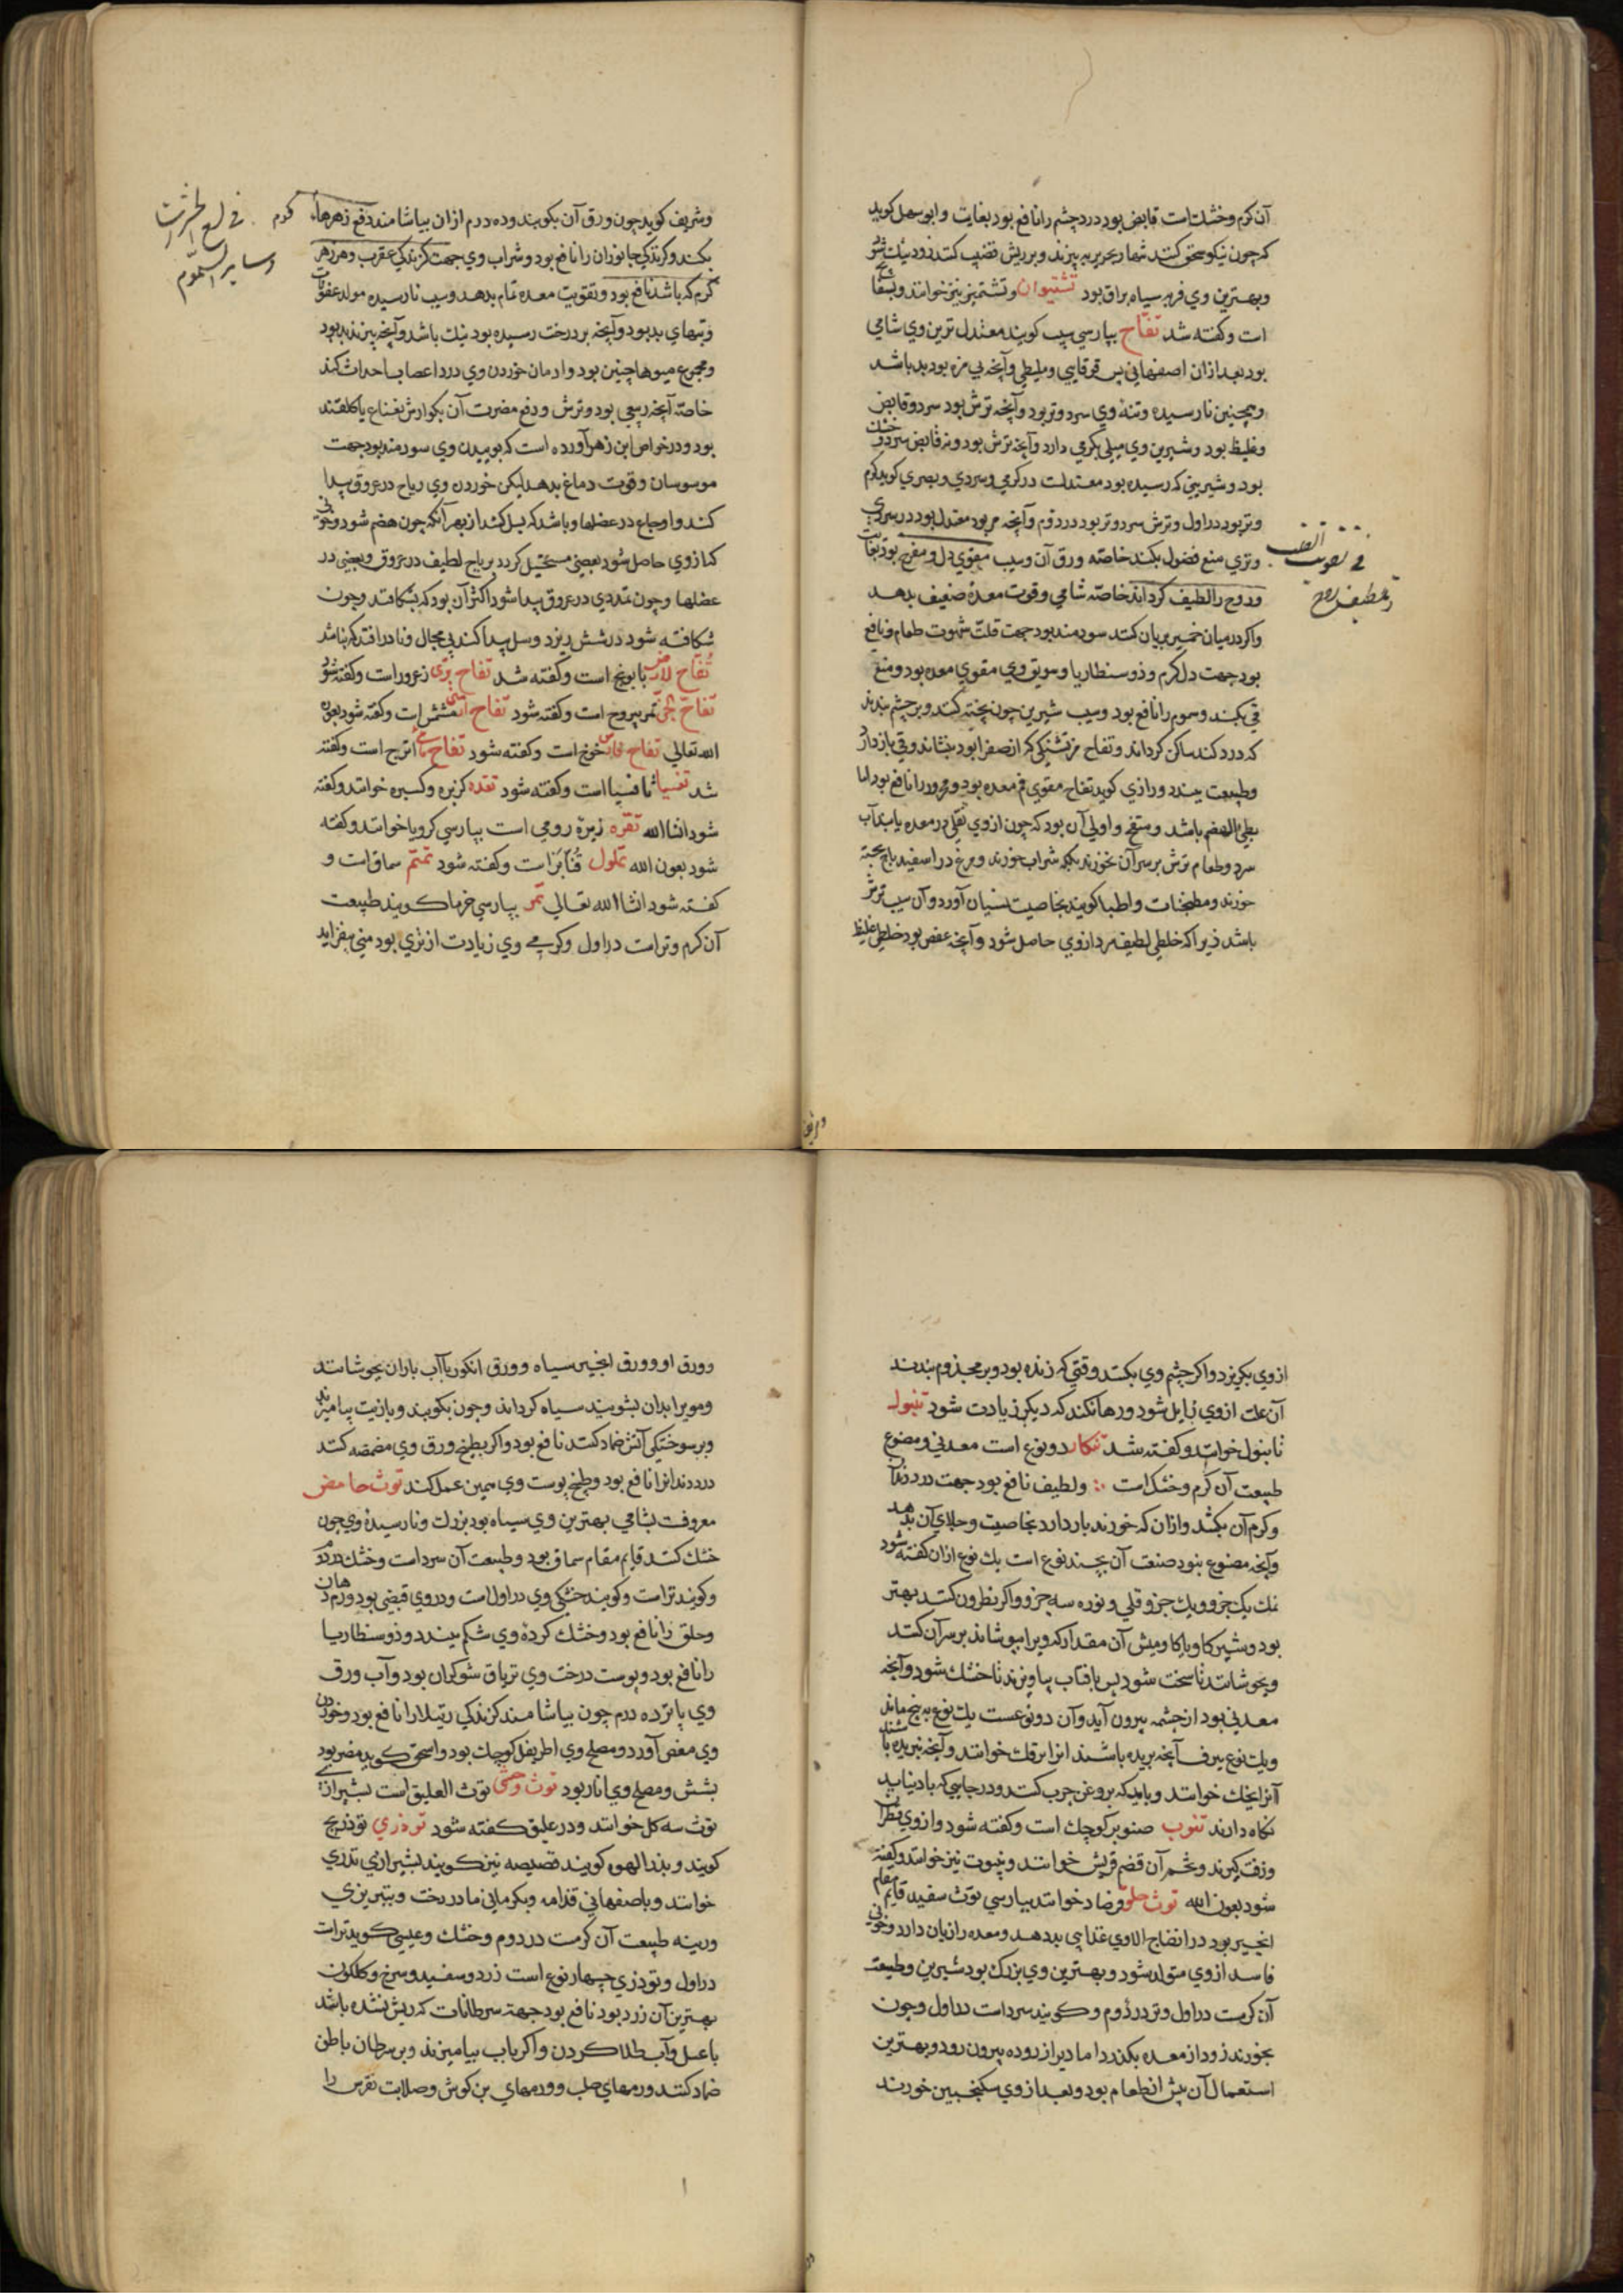 آن کرم و خشک است قابض بود درد چشم را نافع بود بغایت و ابو سهل کوید
که چون نیکو سحق کنند بحریر به بیزند و بر ریش قضیب کنند زود نیک شود
و بهترین وی فربه سیاه براق بود تشتیوان و تشتمیز نیز خوانند و
است و کفته شد تفاح بپارسی سیب کویند معتدل ترین وی شامی
بود بعد از ان اصفهانی پس و آنچه بی مزه بود بد باشد
و همچنین نارسیده و تنه وی سرد و تر بود و آنچه ترش بود سرد و قابض
و غلیظ بود و شیرین وی میلی بکرمی دارد و آنچه ترش بود و نه قابض سرد و خشک
بود و شیرینی که رسیده بود معتدلست در کرمی و سردی و بصری کوید کرم
و تر بود در اول و ترش سرد و تر بود در دوم و آنچه مز بود معتدل بود در سردی
و تری منع فضول بکند خاصه ورق آن و سیب مقوی دل و مفرح بود بغایت
و روح را لطیف کرداند خاصه شامی و قوت معدهٔ ضعیف بدهد
و اکر در میان خمیر بریان کنند سودمند بود جهت قلت شهوت طعام و نافع
بود جهت دل کرم و ذوسنطاریا و سویق وی مقوی معده بود و منع
قی بکند و سموم را نافع بود و سیب شیرین چون پخته کنند و بر چشم بندند
که درد کند ساکن کرداند و تفاح مز تشنکی که از صفرا بود بنشاند و قی باز دارد
و طبیعت ببندد و رازی کوید تفاح مقوی فم معده بود و محرور را نافع بود اما
بطی الهضم باشد و منفخ و اولی آن بود که چون از وی ثقلی در معده یابد آب
سرد و طعام ترش بر سر آن نخورند بلکه شراب خورند و مرغ در اسفیدباج پخته
خورند و مطجنات و اطبا کویند بخاصیت نسیان آورد و آن سیب ترش
باشد زیرا که خلطی لطیف سرد از وی حاصل شود و آنچه عفص بود خلطی غلیظ
فی تقویت القلب
و تلطیف روح
و شریف کوید چون ورق آن بکوبند و ده درم از ان بیاشامند دفع زهرها
بکند و کزندکی جانوران را نافع بود و شراب وی جهت کزندکی عقرب و هر زهر
کرم که باشد نافع بود و تقویت معده تمام بدهد و سیب نارسیده مولد عفونات
و تبهای بد بود و آنچه بر درخت رسیده بود نیک باشد و آنچه بپزند بد بود
و مجموع میوها چنین بود و ادمان خوردن وی درد اعصاب احداث کند
خاصه آنچه ربیعی بود و ترش و دفع مضرت آن بکوارش نعناع یا کلقند
بود و در خواص ابن زهر آورده است که بوییدن وی سودمند بود جهت
موسوسان و قوت دماغ بدهد لیکن خوردن وی ریاح در عروق پیدا
کند و اوجاع در عضلها و باشد که بسل کشد از بهر آنکه چون هضم شود و خونی
که از وی حاصل شود بعضی مستحیل کردد بریاح لطیف در عروق و بعضی در
عضلها و چون تمددی در عروق پیدا شود اکثر آن بود که بشکافد و چون
شکافته شود در شش ریزد و سل پیدا کند بی مجال و نادر افتد که نباشد
تفاح الارض بابونج است و کفته شد تفاح بری زعرور است و کفته شود
تفاح الجن ثمر یبروح است و کفته شود تفاح ارمنی مشمش است و کفته شود بعون
الله تعالی تفاح فارسی خوخ است و کفته شود تفاح مائی اترج است و کفته
شد تفسیا ثافسیا است و کفته شود تقده کزبره و کسبره خوانند و کفته
شود انشاالله تقره زیرهٔ رومی است بپارسی کرویا خوانند و کفته
شود بعون الله تملول قنابری است و کفته شود تمتم سماق است و
کفته شود انشاالله تعالی تمر بپارسی خرما کویند طبیعت
آن کرم و تر است در اول و کرمی وی زیادت از تری بود منی بیفزاید
کرم . فی لسع الحشرات
و سایر السموم
از وی بکریزد و اکر چشم وی بکنند وقتی که زنده بود و بر مجذوم بندند
آن علت از وی زایل شود و رها نکند که دیکر زیادت شود تنبول
تانبول خوانند و کفته شد تنکار دو نوع است معدنی و مصنوع
طبیعت آن کرم و خشک است و لطیف نافع بود جهت درد دندان
و کرم آن بکشد و از ان که خورند باز دارد بخاصیت و جلای آن بدهد
و آنچه مصنوع بود صنعت آن بچند نوع است یک نوع از ان کفته شود
نمک یک جزو و یک جزو قلی و نوره سه جزو و اکر نطرون کنند بهتر
بود و شیر کاو یا کاومیش آن مقدار که ویرا بپوشاند بر سر آن کنند
و بجوشانند تا سخت شود پس بافتاب بیاویزند تا خشک شود و آنچه
معدنی بود از چشمه بیرون آید و آن دو نوعست یک نوع به یخ ماند
و یک نوع ببرف آنچه بریده باشند انرا برقک خوانند و آنچه نبریده باشند
آنرا یخک خوانند و باید که بروغن چرب کنند و در جایی که باد نیابد
نکاه دارند تنوب صنوبر کوچک است و کفته شود و از وی قطران
و زفت کیرند و تخم آن قضم قریش خوانند و ینبوت نیز خوانند و کفته
شود بعون الله توث حلو فرصاد خوانند بپارسی توث سفید قایم مقام
انجیر بود در انضاج الا وی غذایی بد دهد و معده را زیان دارد و خونی
فاسد از وی متولد شود و بهترین وی بزرک بود شیرین و طبیعت
آن کرمست در اول و تر در دوم و کویند سرد است در اول و چون
بخورند زود از معده بکذرد اما دیر از روده بیرون رود و بهترین
استعمال آن پیش از طعام بود و بعد از وی سکنجبین خورند
و ورق او و ورق انجیر سیاه و ورق انکور با آب باران بجوشانند
و موی را بدان بشویند سیاه کرداند و چون بکوبند و با زیت بیامیزند
و بر سوختکی آتش ضماد کنند نافع بود و اکر بطبخ ورق وی مضمضه کنند
درد دندانرا نافع بود و طبخ پوست وی همین عمل کند توث حامض
معروفست بشامی بهترین وی سیاه بود بزرک و نارسیدهٔ وی چون
خشک کنند قایم مقام سماق بود و طبیعت آن سرد است و خشک در دوم
و کویند تر است و کویند خشکی وی در اول است و در وی قبضی بود ورم دهان
و حلق را نافع بود و خشک کردهٔ وی شکم ببندد و ذوسنطاریا
را نافع بود و پوست درخت وی تریاق شوکران بود و آب ورق
وی پانزده درم چون بیاشامند کزندکی رتیلا را نافع بود و خوردن
وی مغص آورد و مصلح وی اطریفل کوچک بود و اسحق کوید مضر بود
بشش و مصلح وی انار بود توث وحشی توث العلیق است بشیرازی
توث سه کل خوانند و در علیق کفته شود تودری تودریج
کویند و بذر الهوه کویند قصیصه نیز کویند بشیرازی تدری
خوانند و باصفهانی قدامه و بکرمانی مادر دخت و بتبریزی
ورینه طبیعت آن کرمست در دوم و خشک و عیسی کوید تر است
در اول و تودری چهار نوع است زرد و سفید و سرخ و کلکون
بهترین آن زرد بود نافع بود جهة سرطانات که ریش نشده باشد
با عسل و آب طلا کردن و اکر باب بیامیزند و بر سرطان باطن
ضماد کنند ورمهای صلب و ورمهای بن کوش و صلابت نقرس را